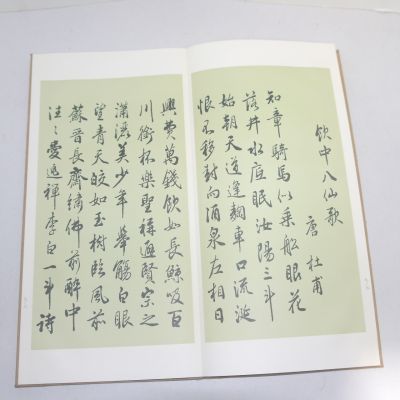 飲中八仙歌
唐 杜甫
知章騎馬似乘船眼花
落井水底眠汝陽三斗
始朝天道逢麴車口流涎
恨不移封向酒泉左相日
興費萬錢飲如長鯨吸百
川銜杯樂聖稱避賢宗之
瀟灑美少年舉觴白眼
望青天皎如玉樹臨風前
蘇晉長齋繡佛前醉中
往々愛逃禪李白一斗詩